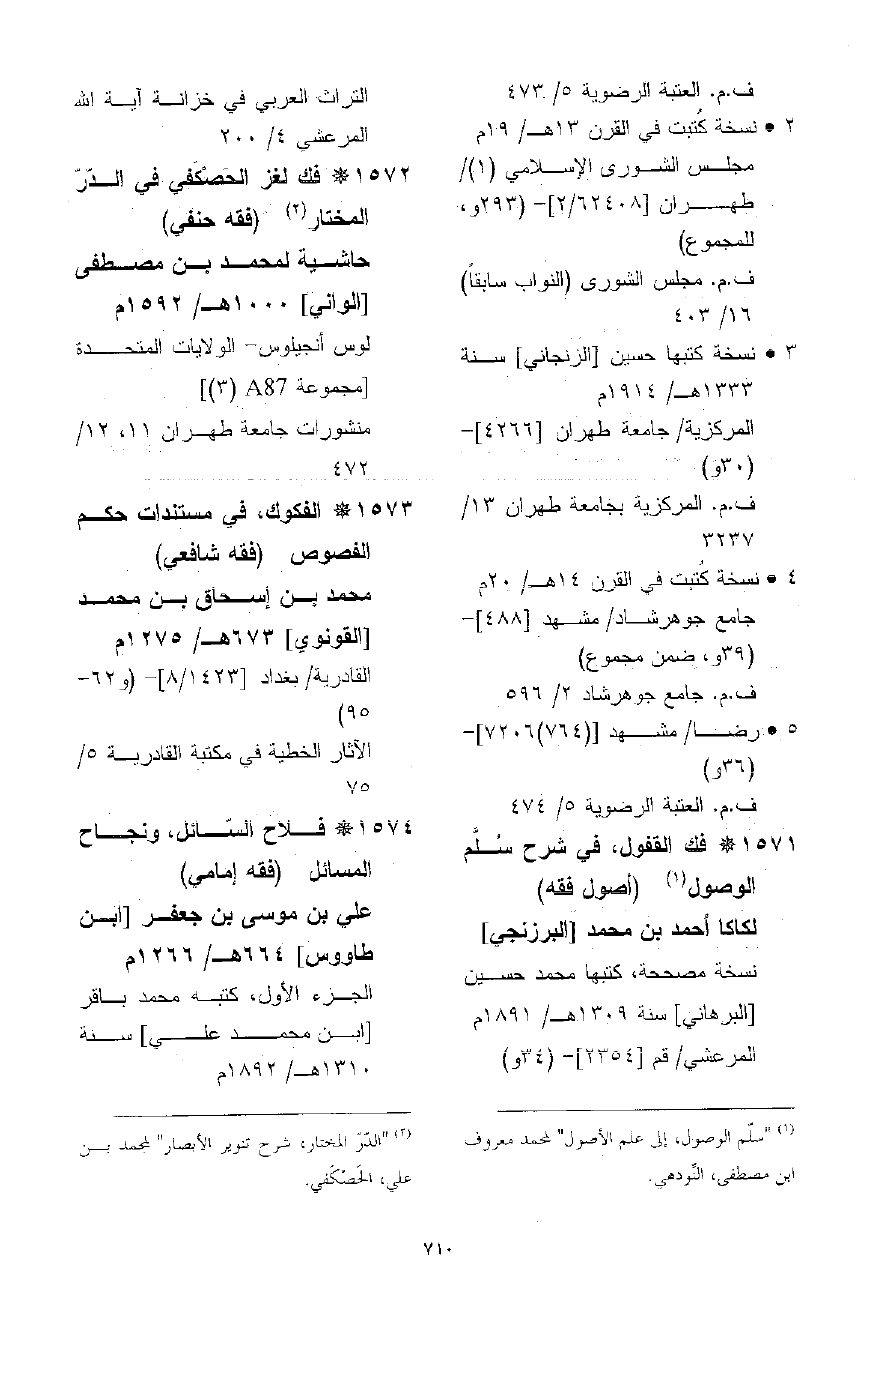 ف.م. العتبة الرضوية ٥/ ٤٧٣
٢ • نسخة كُتبت في القرن ١٣هـ/ ١٩م
مجلس الشورى الإسلامي (١)/
طهران [٢/٦٢٤٠٨]- (٢٩٣و،
للمجموع)
ف.م. مجلس الشورى (النواب سابقاً)
١٦/ ٤٠٣
٣ • نسخة كتبها حسين [الزنجاني] سنة
١٣٣٣هـ/ ١٩١٤م
المركزية/ جامعة طهران [٤٢٦٦]-
(٣٠و)
ف.م. المركزية بجامعة طهران ١٣/
٣٢٣٧
٤ • نسخة كُتبت في القرن ١٤هـ/ ٢٠م
جامع جوهرشاد/ مشهد [٤٨٨]-
(٣٩و، ضمن مجموع)
ف.م. جامع جوهرشاد ٢/ ٥٩٦
٥ • رضا/ مشهد [(٧٦٤)٧٢٠٦]-
(٣٦و)
ف.م. العتبة الرضوية ٥/ ٤٧٤
١٥٧١ * فك القفول، في شرح سُلَّم
الوصول(١) (أصول فقه)
لكاكا أحمد بن محمد [البرزنجي]
نسخة مصححة، كتبها محمد حسين
[البرهاني] سنة ١٣٠٩هـ/ ١٨٩١م
المرعشي/ قم [٢٣٥٤]- (٣٤و)
(١) "سلّم الوصول، إلى علم الأصول" لمحمد معروف
ابن مصطفى، النُّودهي.
التراث العربي في خزانة آية الله
المرعشي ٤/ ٢٠٠
١٥٧٢ * فك لغز الحَصْكَفي في الدّرّ
المختار(٢) (فقه حنفي)
حاشية لمحمد بن مصطفى
[الواني] ١٠٠٠هـ/ ١٥٩٢م
لوس أنجيلوس- الولايات المتحدة
[مجموعة A87 (٣)]
منشورات جامعة طهران ١١، ١٢/
٤٧٢
١٥٧٣ * الفكوك، في مستندات حكم
الفصوص (فقه شافعي)
محمد بن إسحاق بن محمد
[القونوي] ٦٧٣هـ/ ١٢٧٥م
القادرية/ بغداد [٨/١٤٢٣]- (و٦٢-
٩٥)
الآثار الخطية في مكتبة القادرية ٥/
٧٥
١٥٧٤ * فلاح السّائل، ونجاح
المسائل (فقه إمامي)
علي بن موسى بن جعفر [ابن
طاووس] ٦٦٤هـ/ ١٢٦٦م
الجزء الأول، كتبه محمد باقر
[ابن محمد علي] سنة
١٣١٠هـ/ ١٨٩٢م
(٢) "الدّرّ المختار، شرح تنوير الأبصار" لمحمد بن
علي، الحَصْكَفي.
٧١٠